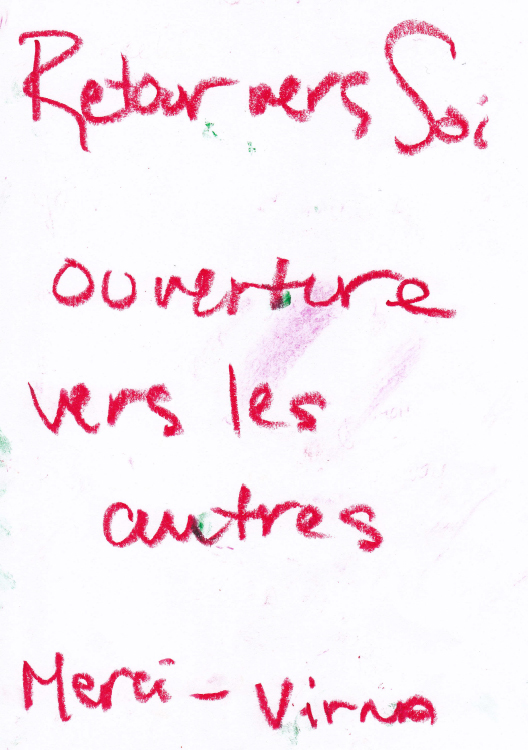 Retour vers Soi
ouverture
vers les
autres
Merci - Virna